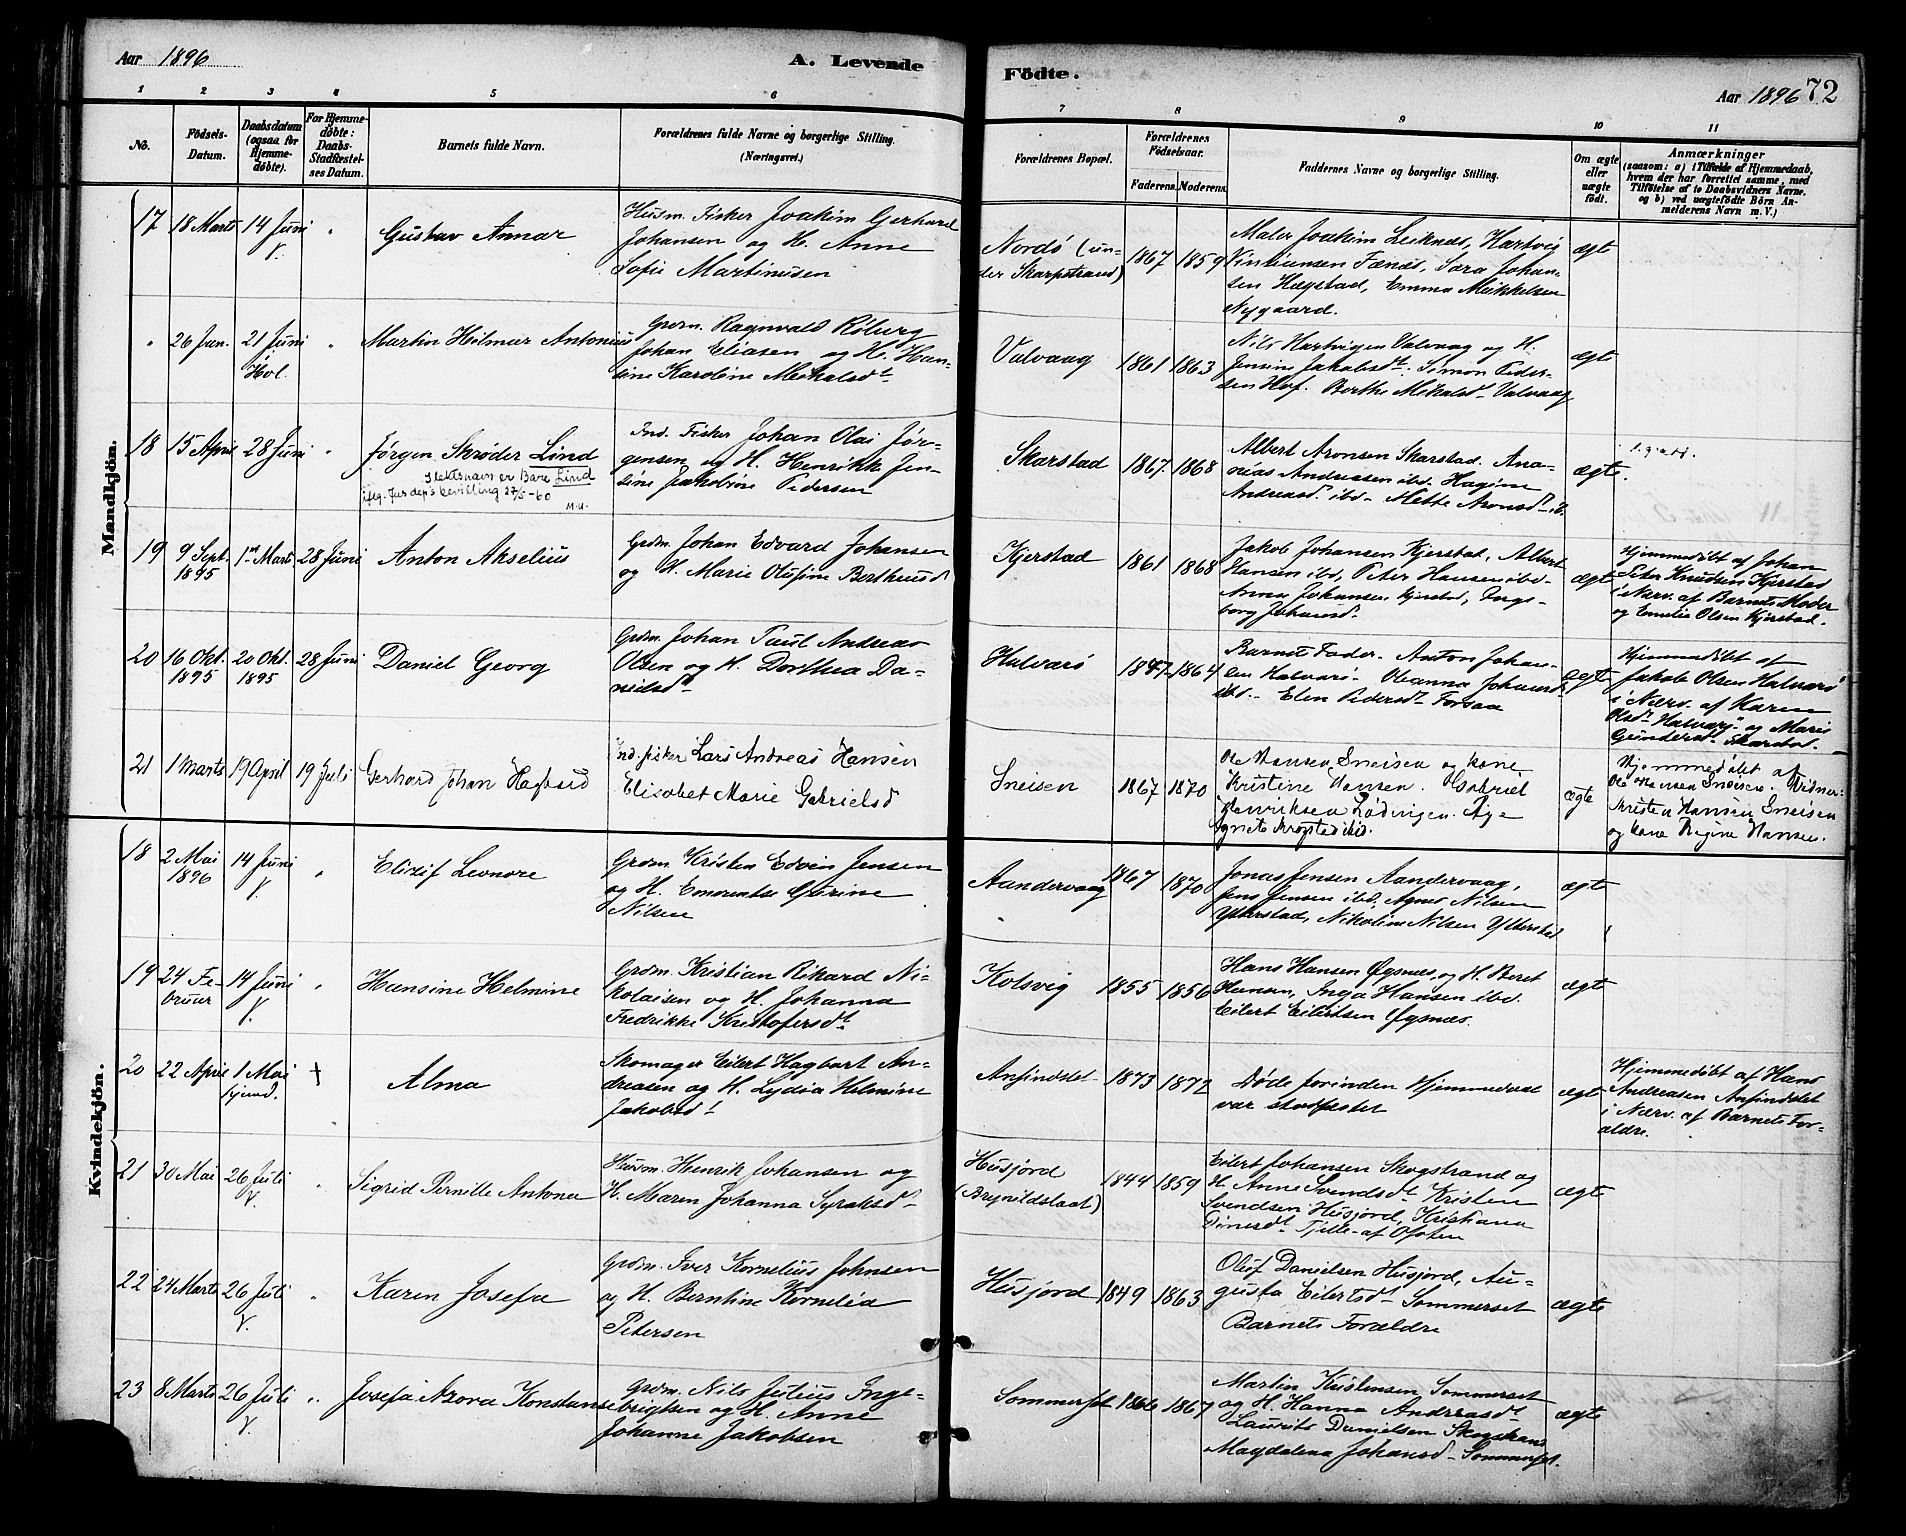 Aar 1896
A. Levende
Fødte.
Aar 1896
72
1
2
3
4
5
6
7
8
9
10
11
No.
Fødsels-
Datum.
Daabsdatum
(ogsaa for
Hjemme-
døbte).
For Hjemme-
døbte:
Daabs-
Stadfæstel-
ses Datum.
Barnets fulde Navn.
Forældrenes fulde Navne og borgerlige Stilling.
(Næringsvei.)
Forældrenes Bopæl.
Forældrenes
Fødselsaar.
Faderens.
Moderens.
Faddernes Navne og borgerlige Stilling.
Om ægte
eller
uægte
født.
Anmærkninger
(saasom: a) i Tilfælde af Hjemmedaab,
hvem der har forrettet samme, med
Tilføielse af to Daabsvidners Navne,
og b) ved uægtefødte Børn An-
melderens Navn m. V.)
Mandkjön.
17
18 Marts
14 Juni
V.
"
Gustav Annar
Husm. Fisker Joakim Gerhard
Johansen og H. Anne
Sofie Martinusen
Nordø (un-
der Skarpstrand)
1867
1859
Maler Joakim Leiknes, Hartvig
Fænes, Sara Johan-
sen Hægstad, Emma Mikkelsen
Nygaard.
ægte
"
26 Jan.
21 Juni
i Hol.
"
Martin Hilmar Antonius
Grdm. Ragnvald Røberg
Johan Eliasen og H. Han-
sine Karoline Mikalsdt
Valvaag
1861
1863
Nils Hartvigen Valvaag og H.
Jensine Jakobsdt. Simon Peder-
sen Hof. Berthe Mikalsdt Valvaag
ægte
18
15 April
28 Juni
"
Jørgen Skrøder Lind
Slektsnavn er Bare Lind
iflg. Jus dep's bevilling 27/5-60
M.U.
Ind. Fisker Johan Olai Jør-
gensen og H. Henrikke Jen-
sine Jakobine Pedersen
Skarstad
1867
1868
Albert Aronsen Skarstad. Ana-
nias Andreasen ibd. Hagine
Andreasdt. ibd. Mette Aronsdt
ægte.
19
9 Sept.
1895
1ste Marts
28 Juni
Anton Akselius
Grdm. Johan Edvard Johansen
og H. Marie Olufine Berthusd
Kjerstad
1861
1868
Jakob Johansen Kjerstad, Albert
Hansen ibd, Peter Hansen ibd.
Anna Johansen Kjerstad, Inge-
borg Johansd.
ægte
Hjemmedøbt af Johan
Peter Knudsen Kjerstad
i Nærv. af Barnets Moder
og Emilie Olsen Kjerstad.
20
16 Okt.
1895
20 Okt.
1895
28 Juni
Daniel Georg
Grdm. Johan Paul Andreas
Olsen og H. Dorthea Da-
nielsdt
Halvarø
1864
Barnets Fader. Anton Johan-
sen Halvarø. Oleanna Johansdt
ibd. Elen Pedersdt Forsaa
ægte
Hjemmedøbt af
Jakob Olsen Halvarø
i Nærv. af Karen
Olsdt Halvarø og Marie
Gundersdt Skarstad.
21
1 Marts
19 April
19 Juli
Gerhard Johan Hagbart
Ind. fisker Lars Andreas Hansen
Elisabet Marie Gabrielsd
Sneisen
1867
1870
Ole Hansen Sneisen og kone
Kristine Hansen. Gabriel
Henriksen Lødingen.
Agnete Krogsted ibid.
ægte
Hjemmedøbt af
Ole Hansen Sneisen. Vidner:
Kristen Hansen Sneisen
og kone Regine Hansen.
Kvindekjön.
18
2 Mai
1896
14 Juni
V.
"
Elizif Leonore
Grdm. Kristen Edvin Jensen
og H. Emerentse Gurine
Nilsen
Aandervaag
1867
1870
Jonas Jensen Aandervaag,
Jens Jensen ibd, Agnes Nilsen
Ytterstad, Nikoline Nilsen Ytterstad
ægte
19
24 Fe-
bruar
14 Juni
V.
"
Hansine Helmine
Grdm. Kristian Rikard Ni-
kolaisen og H. Johanna
Fredrikke Kristofersdt
Kolsvig
1855
1856
Hans Hansen Øysnes, og H. Beret
Hansen, Inga Hansen ibd.
Eilert Eilertsen Øysnes.
ægte
20
22 April
1 Mai
hjemd.
+
Alma
Skomager Eilert Hagbart An-
dreasen og H. Lydia Helmine
Jakobsdt
Anfindslet
1873
1872
Døde forinden Hjemmedaab
var stadfæstet
ægte
Hjemmedøbt af Hans
Andreasen Anfindslet
i Nærv. af Barnets For-
ældre.
21
30 Mai
26 Juli
V.
"
Sigrid Pernille Antona
Husm. Henrik Johansen og
H. Maren Johanna Syraksdt
Husjord
(Brynildslaat)
1844
1859
Eilert Johansen Skogstrand og
H. Anne Svendsdt Kristen
Svendsen Husjord, Kristiana
Dinesdt Tjelle af Ofoten
ægte
22
24 Marts
26 Juli
V.
"
Karen Josefa
Grdm. Iver Kornelius Johnsen
og H. Berntine Kornelia
Petersen
Husjord
1849
1863
Oluf Danielsen Husjord, Au-
gusta Eilertsdt Sommerset
Barnets Forældre
ægte
23
8 Marts
26 Juli
V.
"
Josefa Azora Konstanse
Grdm. Nils Julius Inge-
brigtsen og H. Anne
Johanne Jakobsen
Sommerset
1866
1867
Martin Kristensen Sommerset
og H. Hanna Andreasdt
Laurits Danielsen Skogstrand
Magdalena Johansd Sommerset.
ægte